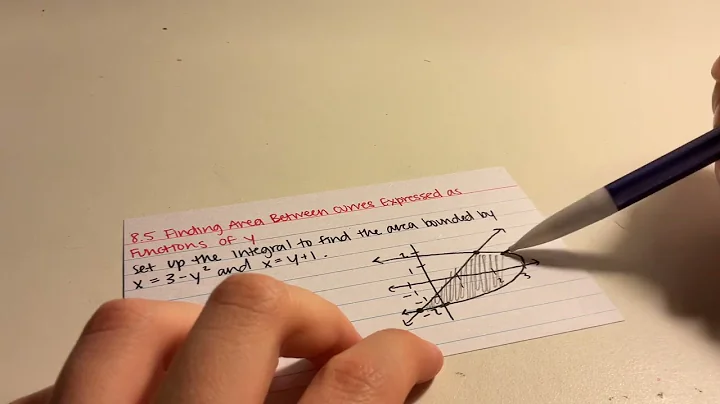 8.5 Finding Area Between curves Expressed as
Functions of y
set up the integral to find the area bounded by
x = 3 - y² and x = y + 1.
2
1
-1
-2
1
2
3